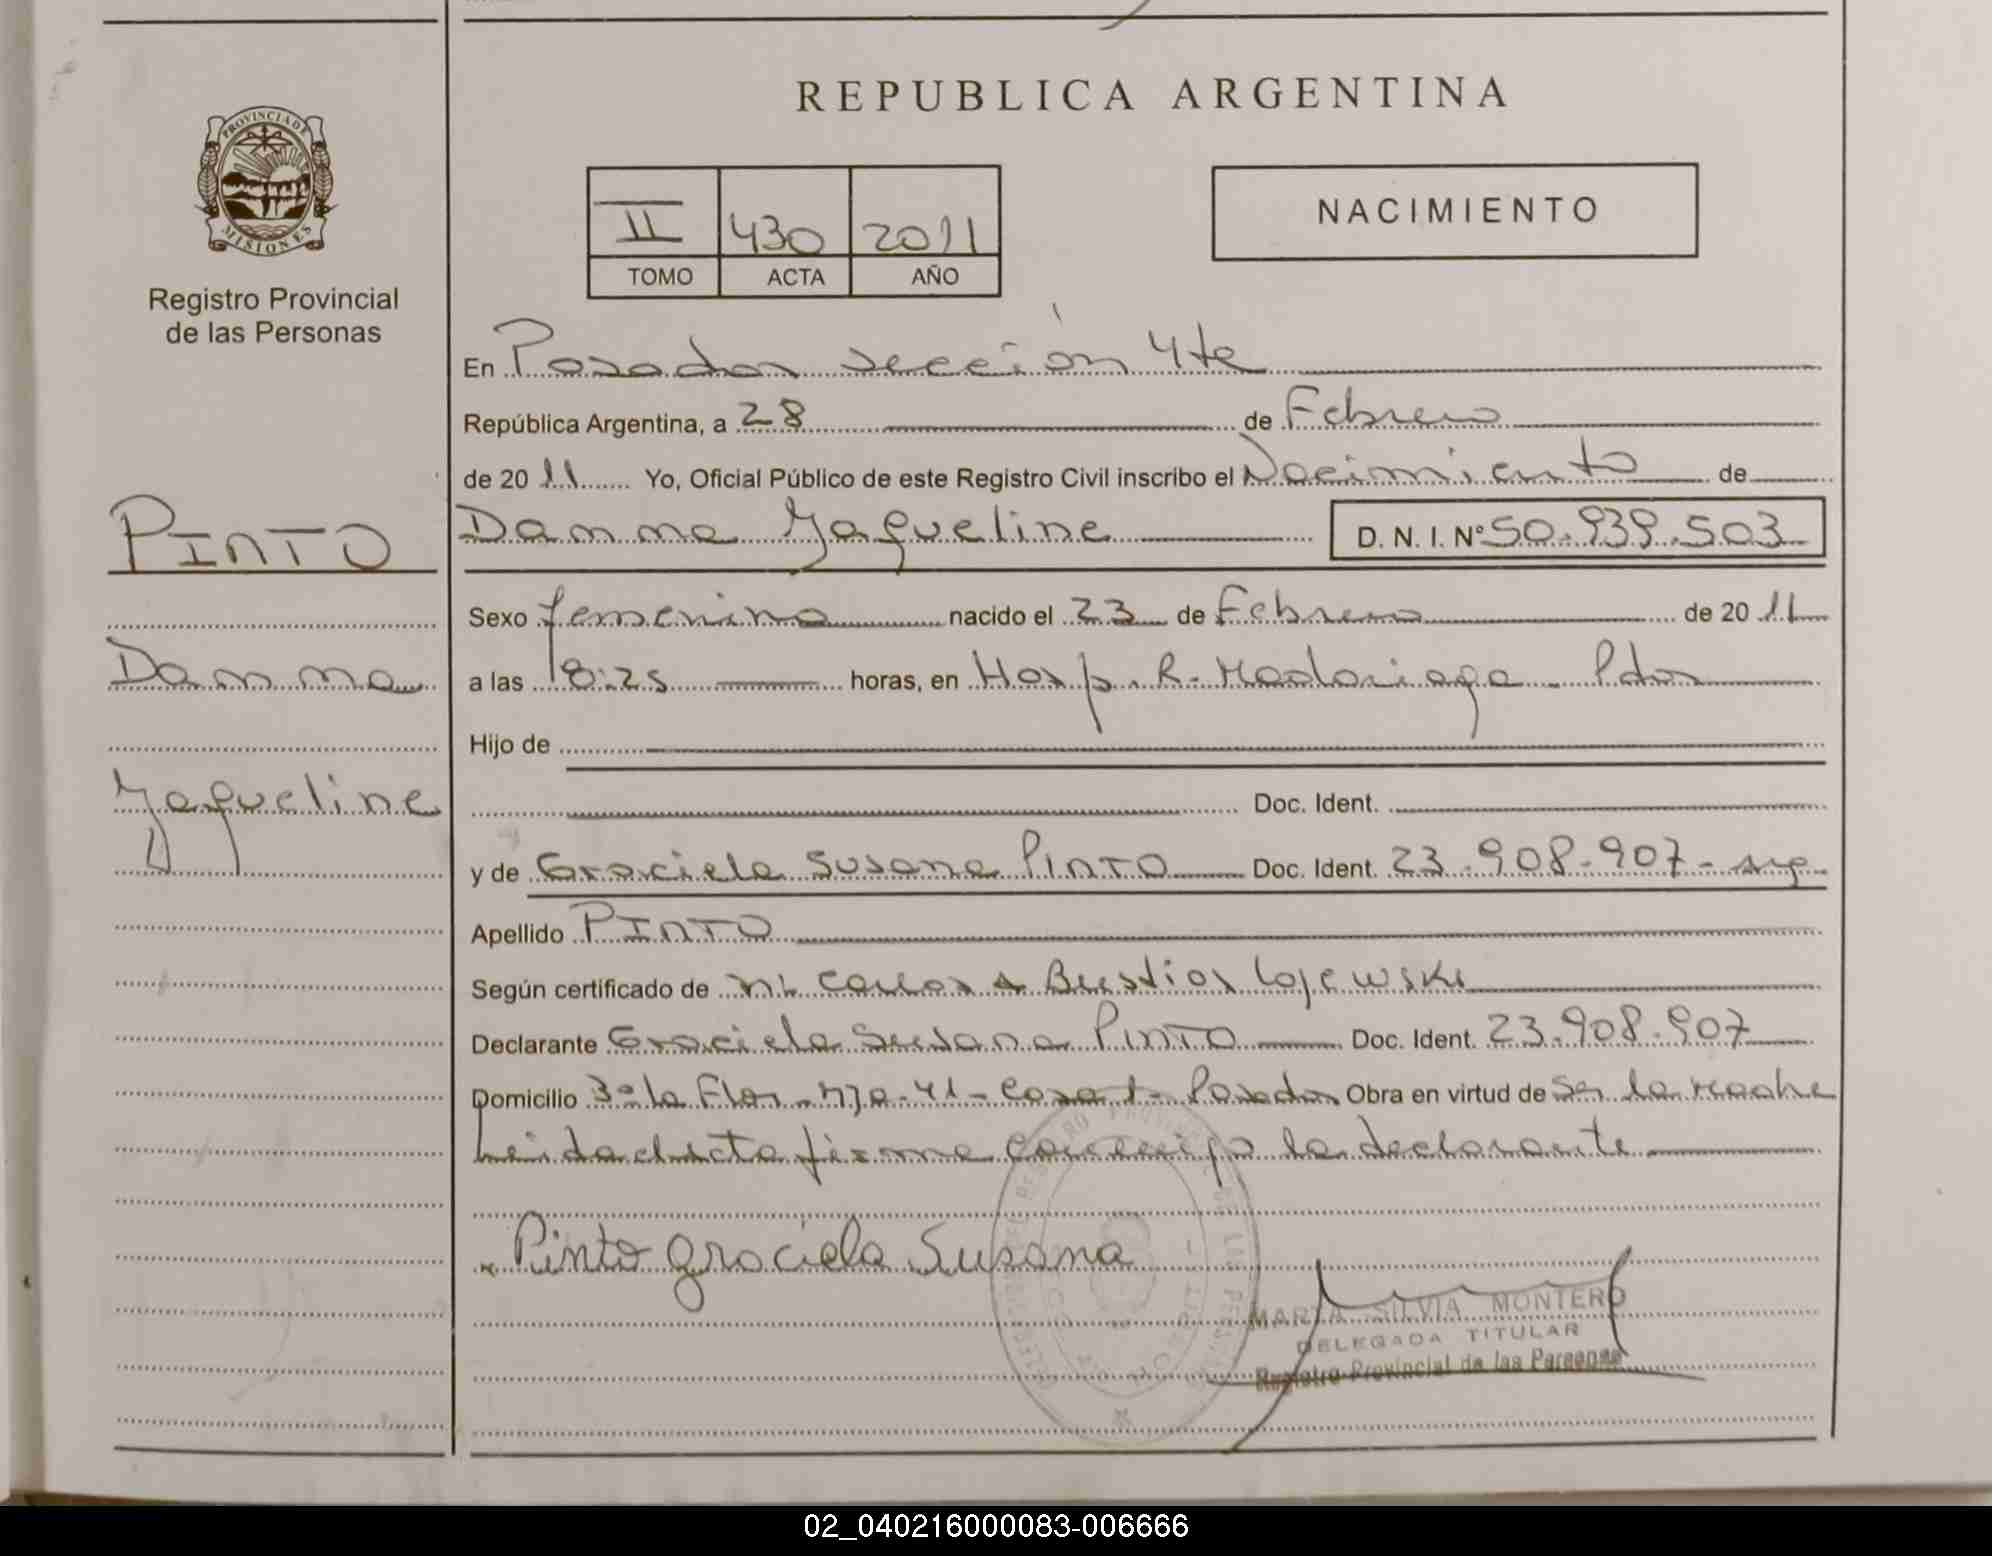 REPUBLICA ARGENTINA
PROVINCIA DE
MISIONES
Registro Provincial
de las Personas
II 430 2011
TOMO ACTA AÑO
NACIMIENTO
En Posadas sección 4ta
República Argentina, a 28 de Febrero
de 2011 Yo, Oficial Público de este Registro Civil inscribo el Nacimiento de
PINTO
Damma Yaqueline D. N. I. Nº 50.939.503
Sexo femenino nacido el 23 de Febrero de 2011
Damma
a las 18:25 horas, en Hosp. R. Madariaga - Pdas
Hijo de
Yaqueline
Doc. Ident.
y de Graciela Susana PINTO Doc. Ident. 23.908.907 - arg
Apellido PINTO
Según certificado de Carlos A Bustios Lojewski
Declarante Graciela Susana PINTO Doc. Ident. 23.908.907
Domicilio Bº la Flor - Mza. 41 - Casa 1 - Posadas Obra en virtud de Ser la Madre
Leida el acta firma conmigo la declarante
Pinto Graciela Susana
MARTA SILVIA MONTERO
DELEGADA TITULAR
Registro Provincial de las Personas
02_040216000083-006666